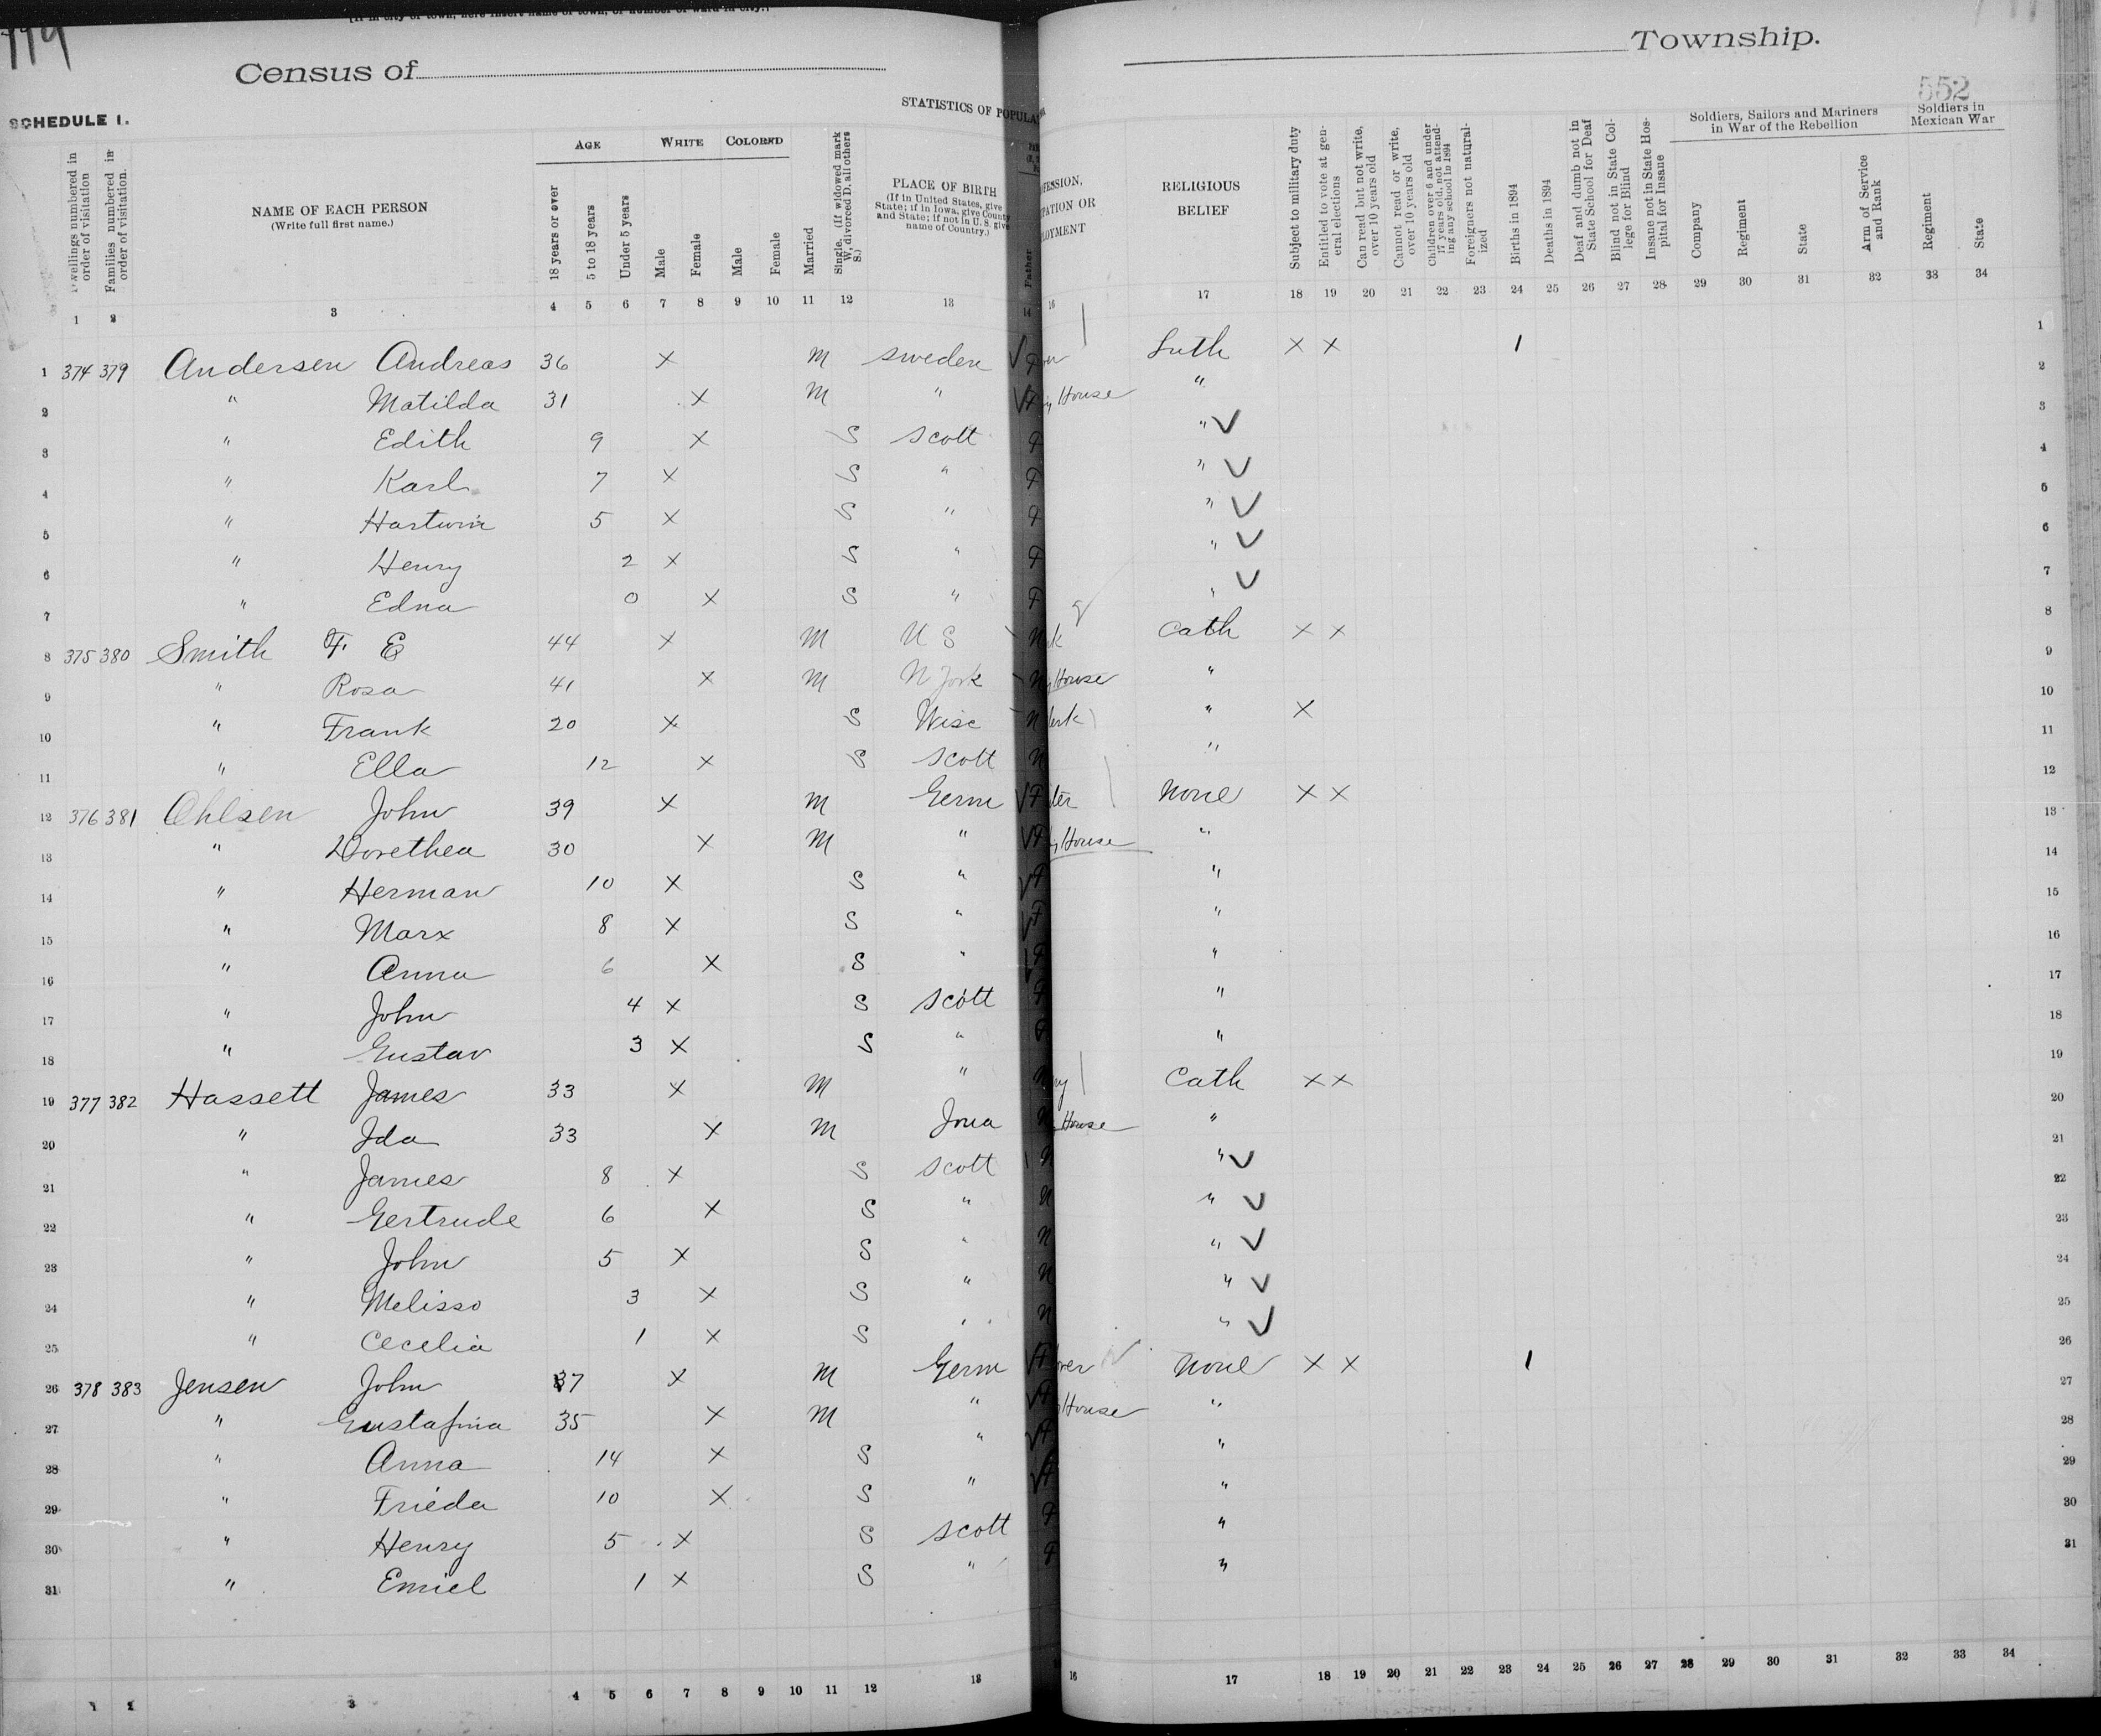 [If in city or town, here insert name of town, or number of ward in city.]
Census of Township.
552
SCHEDULE I.
STATISTICS OF POPULA
Dwellings numbered in order of visitation
Families numbered in order of visitation.
NAME OF EACH PERSON
(Write full first name.)
AGE
18 years or over
5 to 18 years
Under 5 years
WHITE
Male
Female
COLORED
Male
Female
Married
Single. (If widowed mark W, divorced D. all others S.)
PLACE OF BIRTH
(If in United States, give State; if in Iowa, give County and State; if not in U. S. give name of Country.)
Father
FESSION,
PATION OR
LOYMENT
RELIGIOUS
BELIEF
Subject to military duty
Entitled to vote at general elections
Can read but not write, over 10 years old
Cannot read or write, over 10 years old
Children over 6 and under 17 years old, not attending any school in 1894
Foreigners not naturalized
Births in 1894
Deaths in 1894
Deaf and dumb not in State School for Deaf
Blind not in State College for Blind
Insane not in State Hospital for Insane
Soldiers, Sailors and Mariners in War of the Rebellion
Company
Regiment
State
Arm of Service and Rank
Soldiers in Mexican War
Regiment
State
1 2 3 4 5 6 7 8 9 10 11 12 13 14 16 17 18 19 20 21 22 23 24 25 26 27 28 29 30 31 32 33 34
1 374 379 Andersen Andreas 36 X M Sweden Luth X X 1 1
2 " Matilda 31 X M " House " 2
3 " Edith 9 X S Scott " V 3
4 " Karl 7 X S " " V 4
5 " Hartwin 5 X S " " V 5
6 " Henry 2 X S " " V 6
7 " Edna 0 X S " " V 7
8 375 380 Smith F. E 44 X M U S Cath X X 8
9 " Rosa 41 X M N York House " 9
10 " Frank 20 X S Wisc lerk " X 10
11 " Ella 12 X S Scott " 11
12 376 381 Ohlsen John 39 X M Germ ter None X X 12
13 " Dorethea 30 X M " House " 13
14 " Herman 10 X S " " 14
15 " Marx 8 X S " " 15
16 " Anna 6 X S " " 16
17 " John 4 X S Scott " 17
18 " Gustav 3 X S " " 18
19 377 382 Hassett James 33 X M " Cath X X 19
20 " Ida 33 X M Iowa House " 20
21 " James 8 X S Scott " V 21
22 " Gertrude 6 X S " " V 22
23 " John 5 X S " " V 23
24 " Melisso 3 X S " " V 24
25 " Cecelia 1 X S " " V 25
26 378 383 Jensen John 37 X M Germ None X X 1 26
27 " Gustafina 35 X M " House " 27
28 " Anna 14 X S " " 28
29 " Frieda 10 X S " " 29
30 " Henry 5 X S Scott " 30
31 " Emiel 1 X S " " 31
1 2 3 4 5 6 7 8 9 10 11 12 13 16 17 18 19 20 21 22 23 24 25 26 27 28 29 30 31 32 33 34